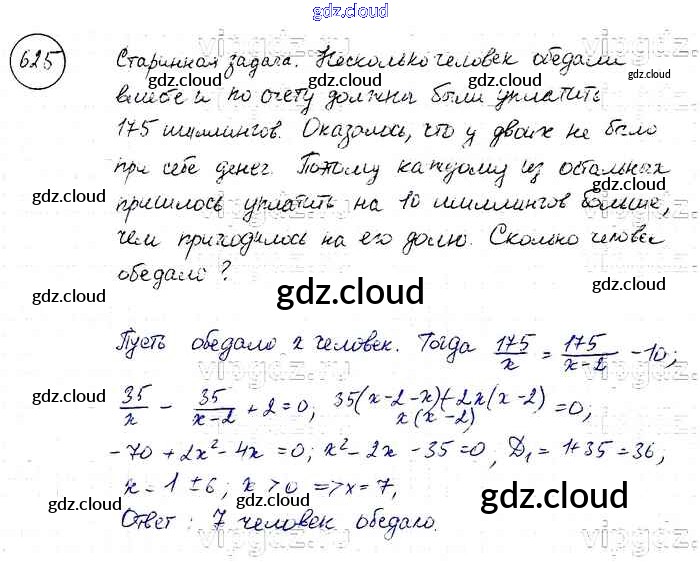 gdz.cloud
625
Старинная задача. Несколько человек обедали
вместе и по счету должны были уплатить
175 шиллингов. Оказалось, что у двоих не было
при себе денег. Поэтому каждому из остальных
пришлось уплатить на 10 шиллингов больше,
чем приходилось на его долю. Сколько человек
обедало?
Пусть обедало x человек. Тогда 175/x = 175/(x-2) - 10;
35/x - 35/(x-2) + 2 = 0, (35(x-2-x)+2x(x-2))/(x(x-2)) = 0;
-70 + 2x² - 4x = 0; x² - 2x - 35 = 0, D₁ = 1+35 = 36,
x = 1 ± 6; x > 0 => x = 7,
Ответ: 7 человек обедало.
gdz.cloud
gdz.cloud
gdz.cloud
gdz.cloud
gdz.cloud
gdz.cloud
gdz.cloud
gdz.cloud
gdz.cloud
gdz.cloud
gdz.cloud
gdz.cloud
gdz.cloud
gdz.cloud